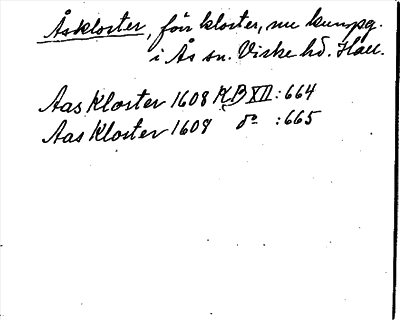 Åskloster, förr kloster, nu kungsg.
i Ås sn. Viske hd. Hall.
Aas Kloster 1608 KB XII:664
Aas Kloster 1609 do :665